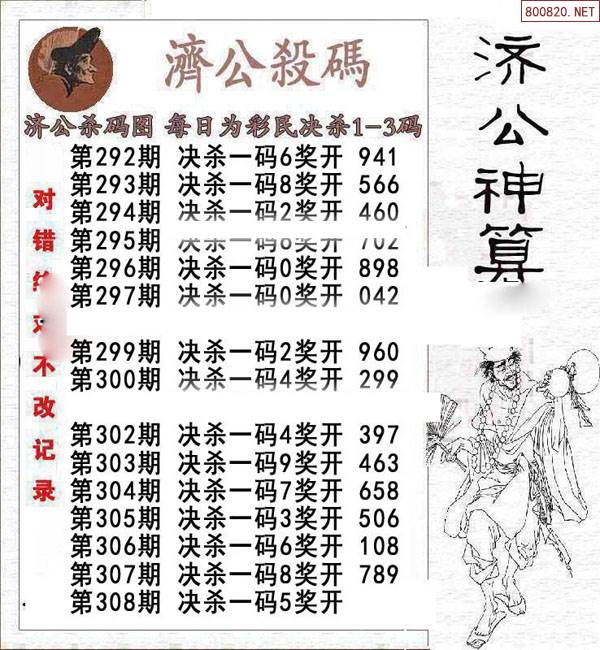 800820.NET
濟公殺碼
济公杀码图 每日为彩民决杀1-3码
第292期 决杀一码6奖开 941
第293期 决杀一码8奖开 566
第294期 决杀一码2奖开 460
第295期 决杀一码 奖开 702
第296期 决杀一码0奖开 898
第297期 决杀一码0奖开 042
第299期 决杀一码2奖开 960
第300期 决杀一码4奖开 299
第302期 决杀一码4奖开 397
第303期 决杀一码9奖开 463
第304期 决杀一码7奖开 658
第305期 决杀一码3奖开 506
第306期 决杀一码6奖开 108
第307期 决杀一码8奖开 789
第308期 决杀一码5奖开
对错 不改记录
济公神算